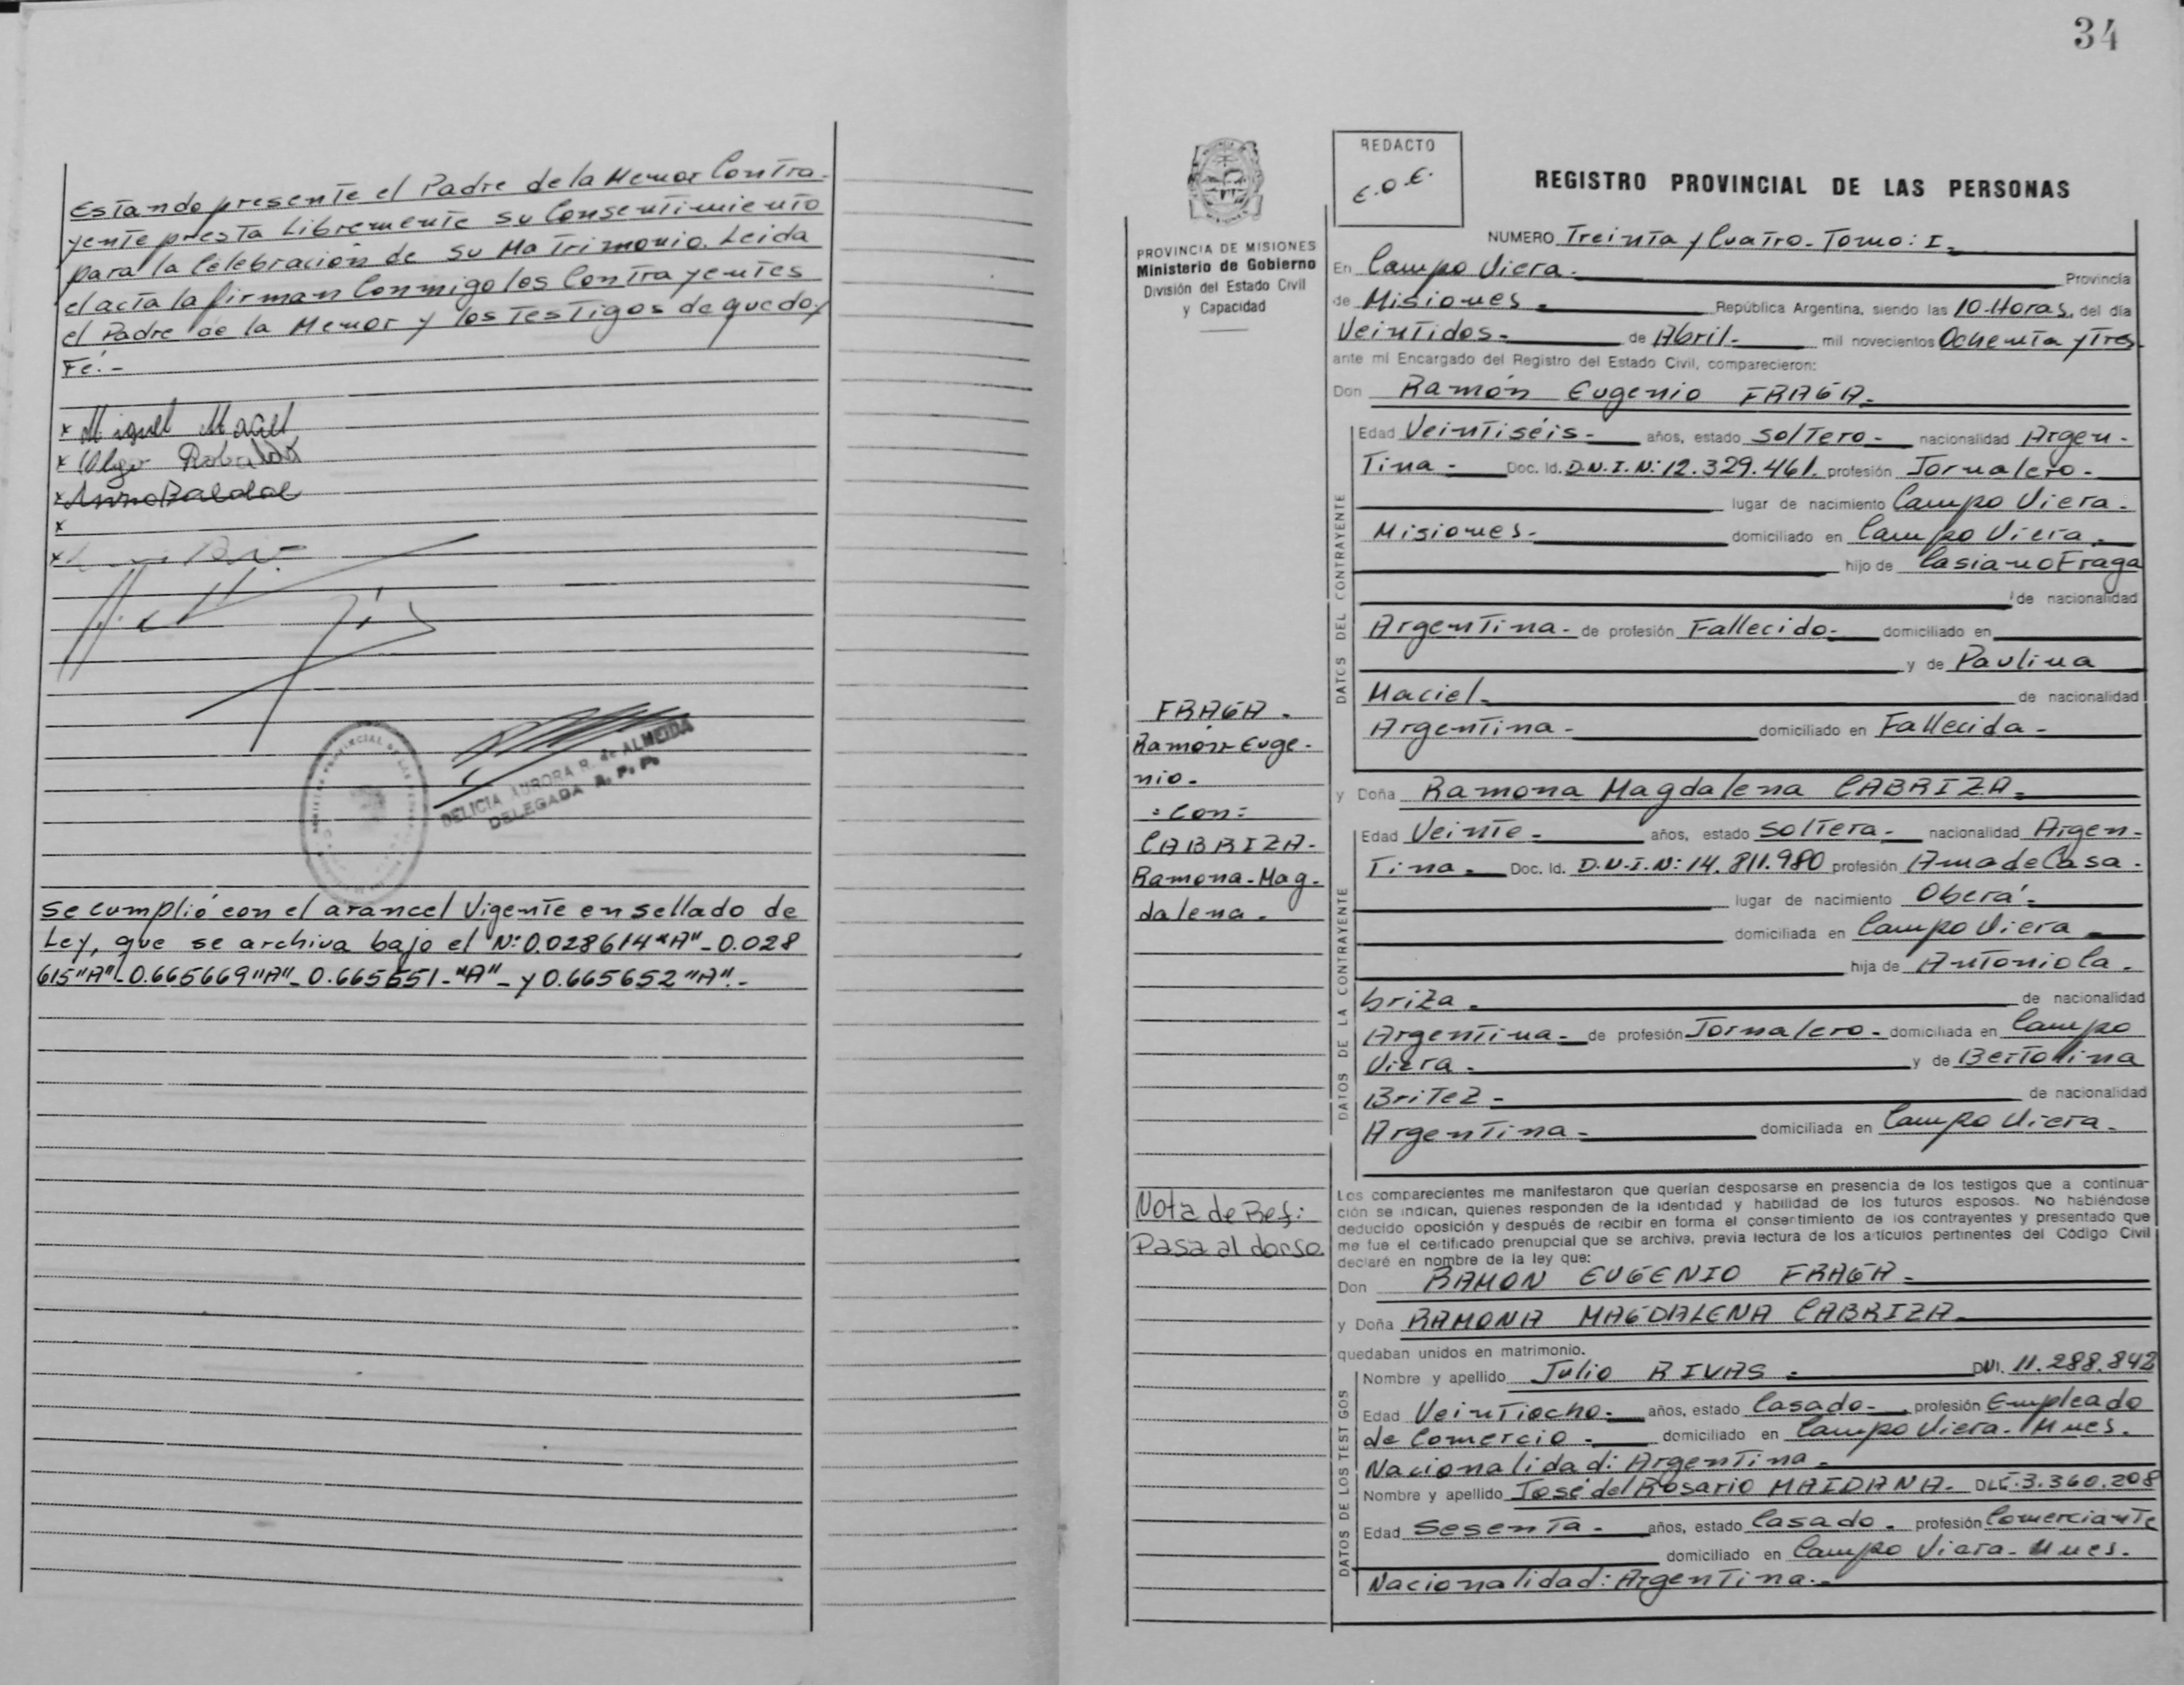 Estando presente el Padre de la Menor Contra-
yente presta Libremente su Consentimiento
para la Celebración de su Matrimonio. Leida
el acta la firman Conmigo los Contrayentes
el Padre de la Menor y los Testigos de que doy
Fé.-
x Miguel
x Olga
x
x
x
REGISTRO PROVINCIAL DE LAS
DELICIA AURORA R. de ALMEIDA
DELEGADA R. P. P.
Se cumplió con el arancel Vigente en sellado de
Ley, que se archiva bajo el Nº 0.028614 "A"- 0.028
615 "A"- 0.665669 "A"- 0.665651- "A"- y 0.665652 "A".-
34
PROVINCIA DE MISIONES
Ministerio de Gobierno
División del Estado Civil
y Capacidad
FRAGA.-
Ramón Euge-
nio.-
:Con:
CABRIZA-
Ramona-Mag-
dalena.-
Nota de Ref:
Pasa al dorso
REDACTO
E.O.E.
REGISTRO PROVINCIAL DE LAS PERSONAS
NUMERO Treinta y Cuatro- Tomo: I-
En Campo Viera.- Provincia
de Misiones.- República Argentina, siendo las 10-Horas, del día
Veintidos- de Abril.- mil novecientos Ochenta y Tres-
ante mí Encargado del Registro del Estado Civil, comparecieron:
Don Ramón Eugenio FRAGA-
DATOS DEL CONTRAYENTE
Edad Veintiséis- años, estado Soltero- nacionalidad Argen-
Tina- Doc. Id. D.N.I.Nº 12.329.461. profesión Jornalero-
lugar de nacimiento Campo Viera-
Misiones- domiciliado en Campo Viera.-
hijo de Casiano Fraga
de nacionalidad
Argentina- de profesión Fallecido- domiciliado en
y de Paulina
Maciel- de nacionalidad
Argentina- domiciliado en Fallecida-
y Doña Ramona Magdalena CABRIZA-
DATOS DE LA CONTRAYENTE
Edad Veinte- años, estado Soltera- nacionalidad Argen-
Tina- Doc. Id. D.N.I.Nº 14.811.980 profesión Ama de Casa-
lugar de nacimiento Oberá-
domiciliada en Campo Viera-
hija de Antonio Ca-
briza- de nacionalidad
Argentina- de profesión Jornalero- domiciliada en Campo
Viera- y de Bertolina
Britez- de nacionalidad
Argentina- domiciliada en Campo Viera-
Los comparecientes me manifestaron que querían desposarse en presencia de los testigos que a continua-
ción se indican, quienes responden de la identidad y habilidad de los futuros esposos. No habiéndose
deducido oposición y después de recibir en forma el consertimiento de los contrayentes y presentado que
me fue el certificado prenupcial que se archiva, previa lectura de los artículos pertinentes del Código Civil
declaré en nombre de la ley que:
Don RAMON EUGENIO FRAGA-
y Doña RAMONA MAGDALENA CABRIZA-
quedaban unidos en matrimonio.
DATOS DE LOS TESTIGOS
Nombre y apellido Julio RIVAS- DNI. 11.288.842
Edad Veintiocho- años, estado Casado- profesión Empleado
de Comercio- domiciliado en Campo Viera-Mnes.
Nacionalidad: Argentina-
Nombre y apellido José del Rosario MAIDANA- DLE-3.360.208
Edad Sesenta- años, estado Casado- profesión Comerciante
domiciliado en Campo Viera-Mnes.
Nacionalidad: Argentina.-